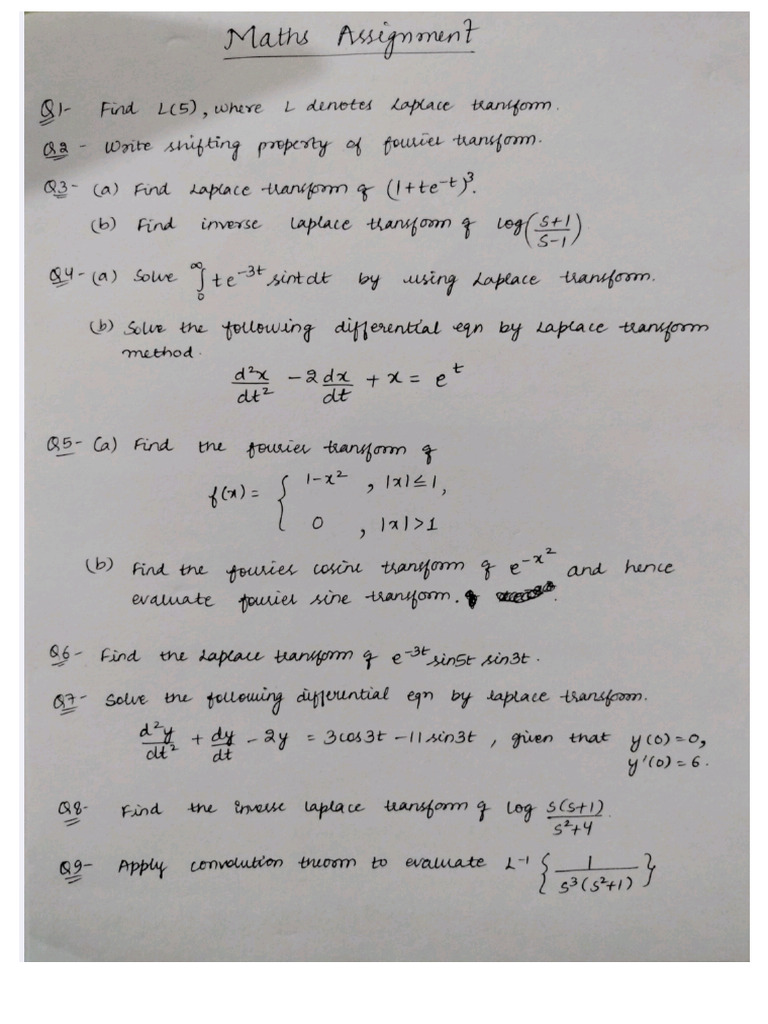 Maths Assignment
Q1- Find L(5), where L denotes Laplace transform.
Q2- Write shifting property of fourier transform.
Q3- (a) Find Laplace transform of (1+te^-t)^3.
(b) Find inverse laplace transform of log((s+1)/(s-1))
Q4- (a) Solve ∫₀^∞ te^-3t sint dt by using Laplace transform.
(b) Solve the following differential eqn by Laplace transform
method.
d²x/dt² - 2dx/dt + x = e^t
Q5- (a) Find the fourier transform of
f(x) = { 1-x² , |x|≤1,
0 , |x|>1
(b) Find the fourier cosine transform of e^-x² and hence
evaluate fourier sine transform.
Q6- Find the Laplace transform of e^-3t sin5t sin3t.
Q7- Solve the following differential eqn by laplace transform.
d²y/dt² + dy/dt - 2y = 3cos3t - 11sin3t, given that y(0)=0,
y'(0)=6.
Q8- Find the inverse laplace transform of log s(s+1)/(s²+4).
Q9- Apply convolution theorm to evaluate L^-1 { 1/(s³(s²+1)) }